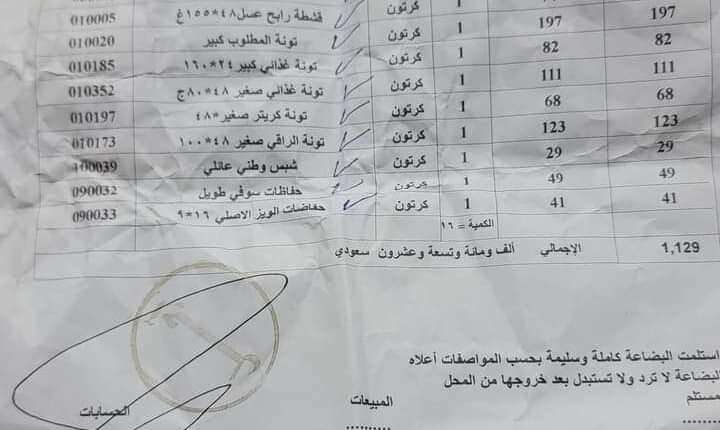 010005 قشطة رابح عسل ٤٨*١٥٥غ كرتون 1 197 197
010020 تونة المطلوب كبير كرتون 1 82 82
010185 تونة غذائي كبير ٢٤*١٦٠ كرتون 1 111 111
010352 تونة غذائي صغير ٤٨*٨٠ج كرتون 1 68 68
010197 تونة كريتر صغير*٤٨ كرتون 1 123 123
010173 تونة الراقي صغير ٤٨*١٠٠ كرتون 1 29 29
100039 شبس وطني عائلي كرتون 1 49 49
090032 حفاظات سوفي طويل كرتون 1 41 41
090033 حفاضات الويز الاصلي ١٦*٩ كرتون
الكمية = ١٦
الإجمالي ألف ومائة وتسعة وعشرون سعودي 1,129
استلمت البضاعة كاملة وسليمة بحسب المواصفات أعلاه
البضاعة لا ترد ولا تستبدل بعد خروجها من المحل
مستلم المبيعات الحسابات